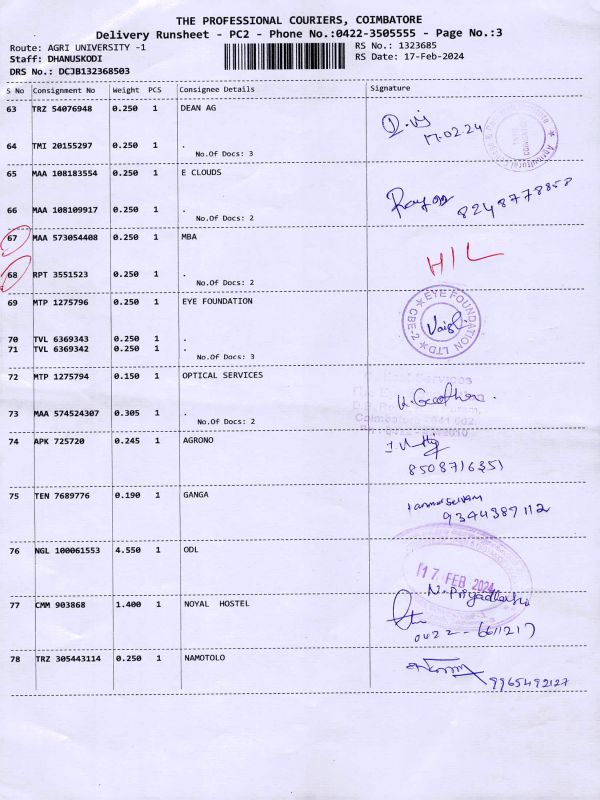 THE PROFESSIONAL COURIERS, COIMBATORE
Delivery Runsheet - PC2 - Phone No.:0422-3505555 - Page No.:3
Route: AGRI UNIVERSITY -1
RS No.: 1323685
Staff: DHANUSKODI
RS Date: 17-Feb-2024
DRS No.: DCJB132368503
S No Consignment No Weight PCS Consignee Details Signature
63 TRZ 54076948 0.250 1 DEAN AG
17.02.24
64 TMI 20155297 0.250 1 .
No.Of Docs: 3
65 MAA 108183554 0.250 1 E CLOUDS
66 MAA 108109917 0.250 1 .
No.Of Docs: 2
8248778858
67 MAA 573054408 0.250 1 MBA
H/L
68 RPT 3551523 0.250 1 .
No.Of Docs: 2
69 MTP 1275796 0.250 1 EYE FOUNDATION
EYE FOUNDATION LTD CBE-2
70 TVL 6369343 0.250 1 .
71 TVL 6369342 0.250 1
No.Of Docs: 3
72 MTP 1275794 0.150 1 OPTICAL SERVICES
73 MAA 574524307 0.305 1 .
No.Of Docs: 2
74 APK 725720 0.245 1 AGRONO
8508716351
75 TEN 7689776 0.190 1 GANGA
9344389112
76 NGL 100061553 4.550 1 ODL
17 FEB 2024
77 CMM 903868 1.400 1 NOYAL HOSTEL
0422-6611217
78 TRZ 305443114 0.250 1 NAMOTOLO
9965492127